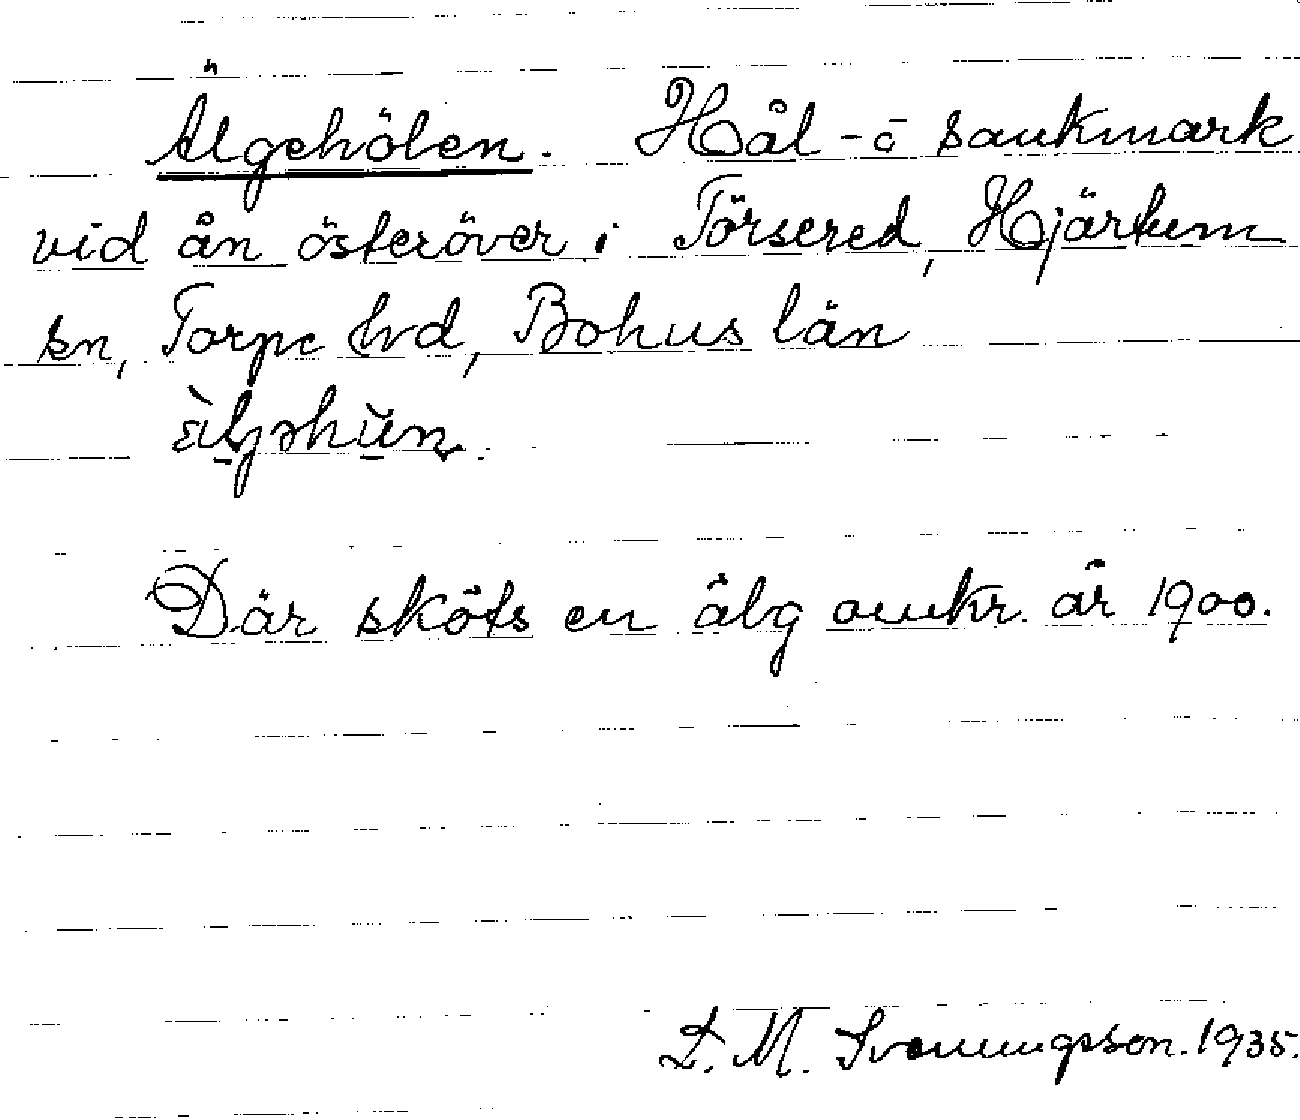 Älgehölen. Hål- o sankmark
vid ån österöver i Törsered, Hjärtum
sn, Torpe hd, Bohus län
Där sköts en älg omkr. år 1900.
D. M. Svenningsson. 1935.